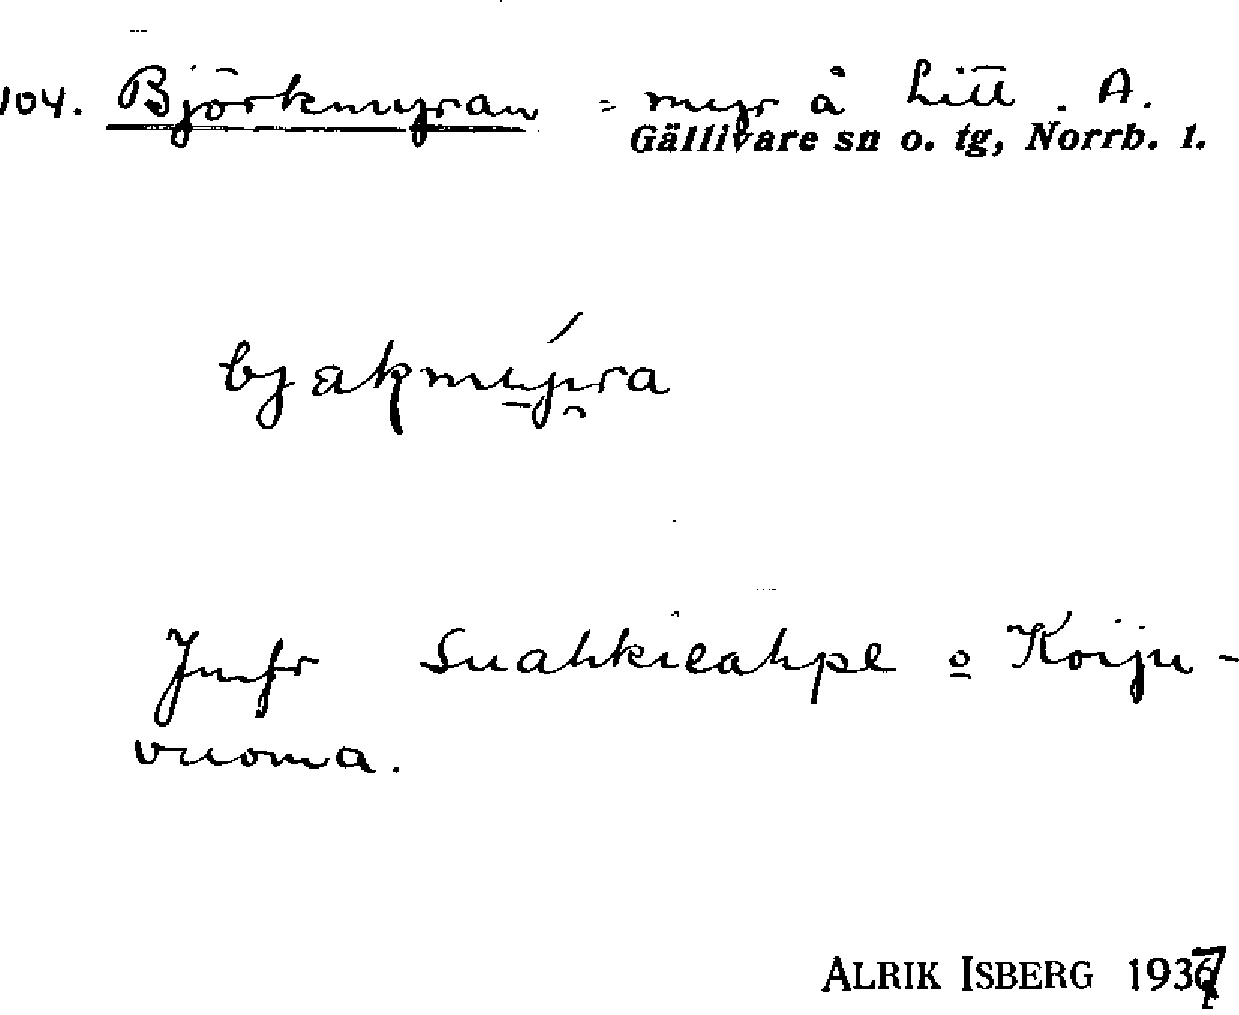 104. Björkmyran = myr å Litt. A.
Gällivare sn o. tg, Norrb. l.
bjakmyra
Jmfr Suahkieahpe o Koiju-
vuoma.
ALRIK ISBERG 1937